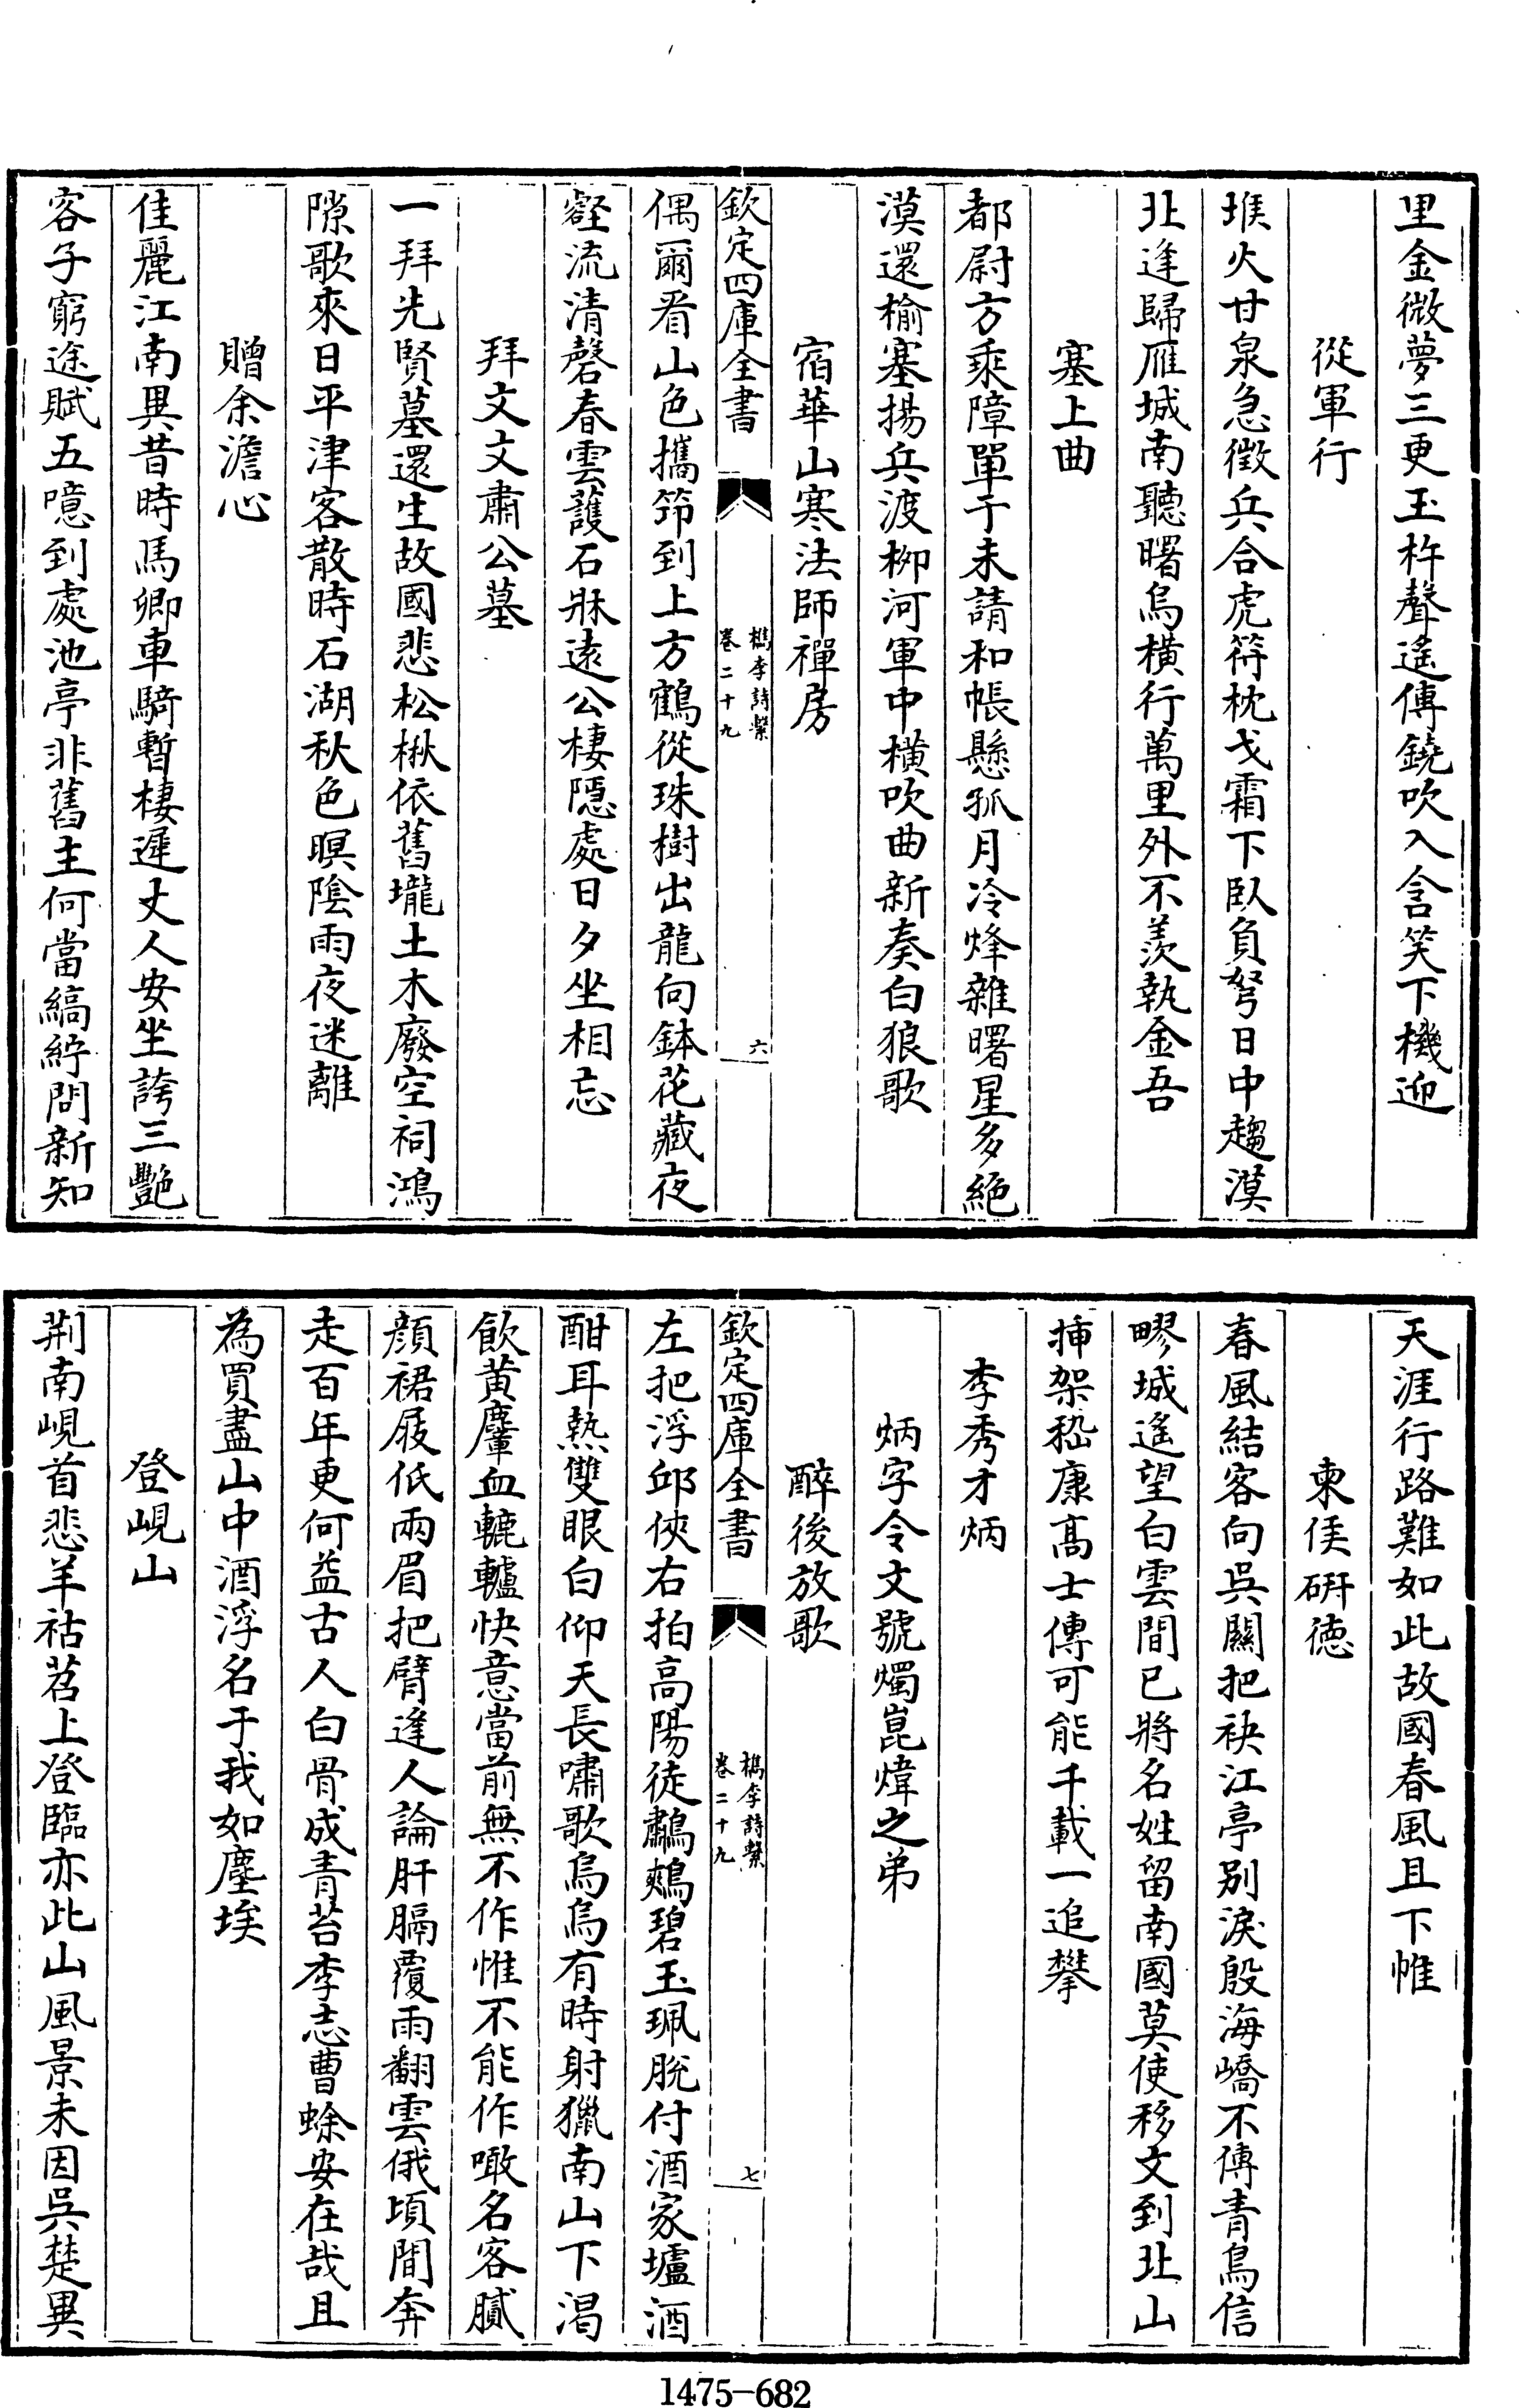 里金微夢三更玉杵聲遙傳鐃吹入含笑下機迎
從軍行
堠火甘泉急徴兵合虎符枕戈霜下臥負弩日中趨漠
北逢歸雁城南聽曙烏橫行萬里外不羨執金吾
塞上曲
都尉方乘障單于未請和帳懸孤月冷烽雜曙星多絶
漠還榆塞揚兵渡柳河軍中橫吹曲新奏白狼歌
宿華山寒法師禪房
欽定四庫全書
檇李詩繫
卷二十九
六
偶爾看山色攜笻到上方鶴從珠樹出龍向鉢花藏夜
壑流清磬春雲護石牀遠公棲隠處日夕坐相忘
拜文文肅公墓
一拜先賢墓還生故國悲松楸依舊壠土木廢空祠鴻
隙歌來日平津客散時石湖秋色暝陰雨夜迷離
贈余澹心
佳麗江南異昔時馬卿車騎暫棲遲丈人安坐誇三艷
客子窮途賦五噫到處池亭非舊主何當縞紵問新知
天涯行路難如此故國春風且下帷
柬侯研徳
春風結客向呉闗把袂江亭別淚殷海嶠不傳青鳥信
疁城遙望白雲間已將名姓留南國莫使移文到北山
挿架嵇康髙士傳可能千載一追攀
李秀才炳
炳字令文號燭崑煒之弟
醉後放歌
欽定四庫全書
檇李詩繫
卷二十九
七
左把浮邱俠右拍高陽徒鷫鷞碧玉珮脫付酒家壚酒
酣耳熱雙眼白仰天長嘯歌烏烏有時射獵南山下渴
飲黄麞血轆轤快意當前無不作惟不能作噉名客膩
顔裙屐低兩眉把臂逢人論肝膈覆雨翻雲俄頃間奔
走百年更何益古人白骨成青苔李志曹蜍安在哉且
為買盡山中酒浮名于我如塵埃
登峴山
荆南峴首悲羊祜苕上登臨亦此山風景未因呉楚異
1475-682